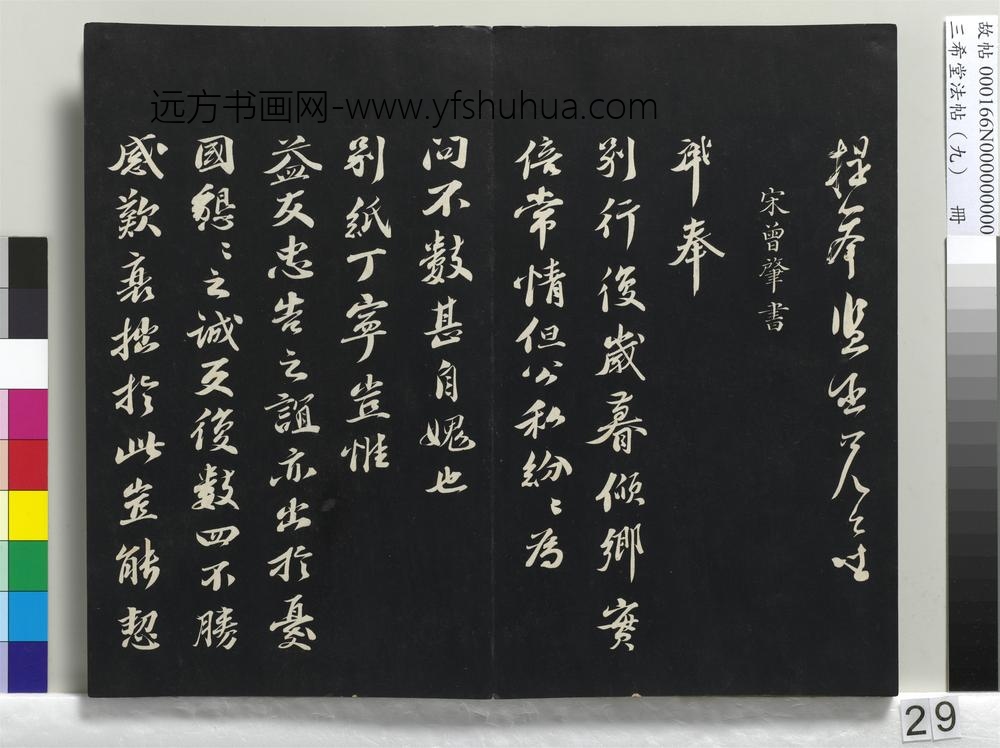 远方书画网-www.yfshuhua.com
故帖 000166N000000000
三希堂法帖（九） 冊
提舉
宋曾肇書
肇奉
別行後歲暮傾鄉實
倍常情但公私紛〻為
問不數甚自愧也
別紙丁寧豈惟
益友忠告之誼亦出於憂
國懇〻之誠反復數四不勝
感歎衰拙於此豈能
29